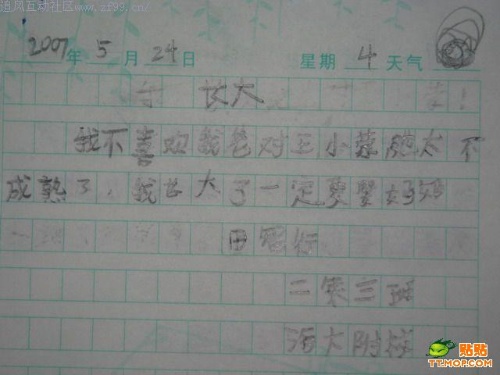 追风互动社区
2007年5月24日 星期4天气
长大
我不喜欢我爸对王小太不
成熟了，我长大了一定要娶好妈
田
二零三班
海大附校
贴贴
TT.MOP.COM